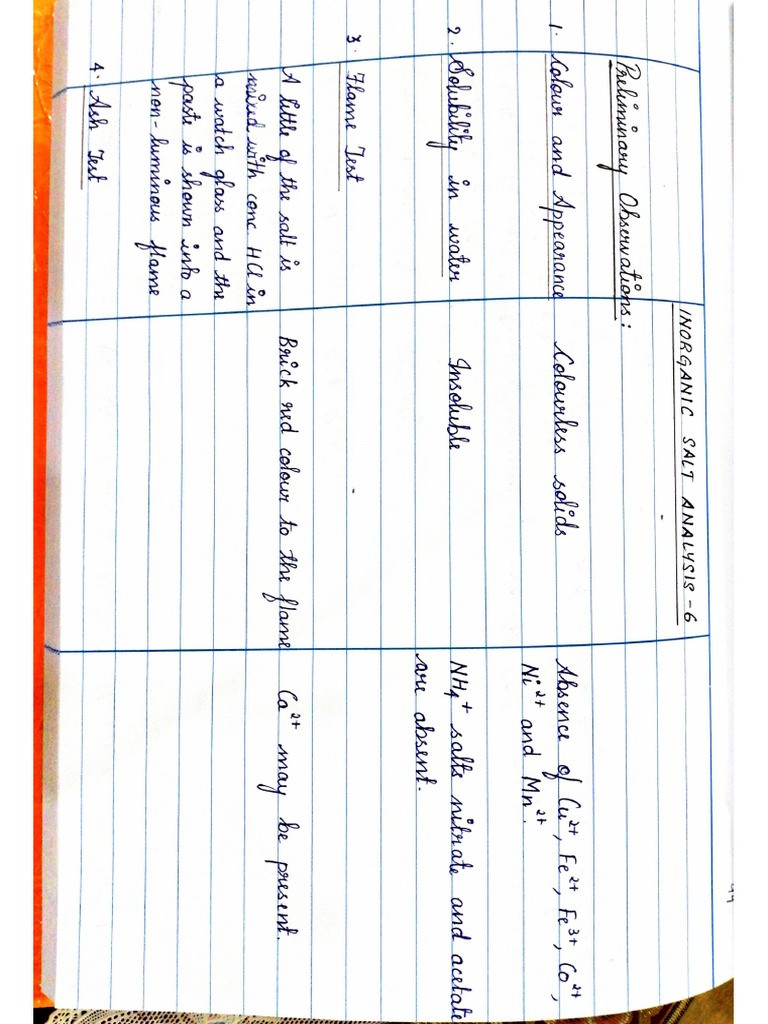 INORGANIC SALT ANALYSIS-6
Preliminary Observations:
1. Colour and Appearance
Colourless solids
Absence of Cu²⁺, Fe²⁺, Fe³⁺, Co²⁺,
Ni²⁺ and Mn²⁺.
2. Solubility in water
Insoluble
NH₄⁺ salts nitrate and acetate
are absent.
3. Flame Test
A little of the salt is
mixed with conc HCl in
a watch glass and the
paste is shown into a
non-luminous flame
Brick red colour to the flame
Ca²⁺ may be present.
4. Ash Test